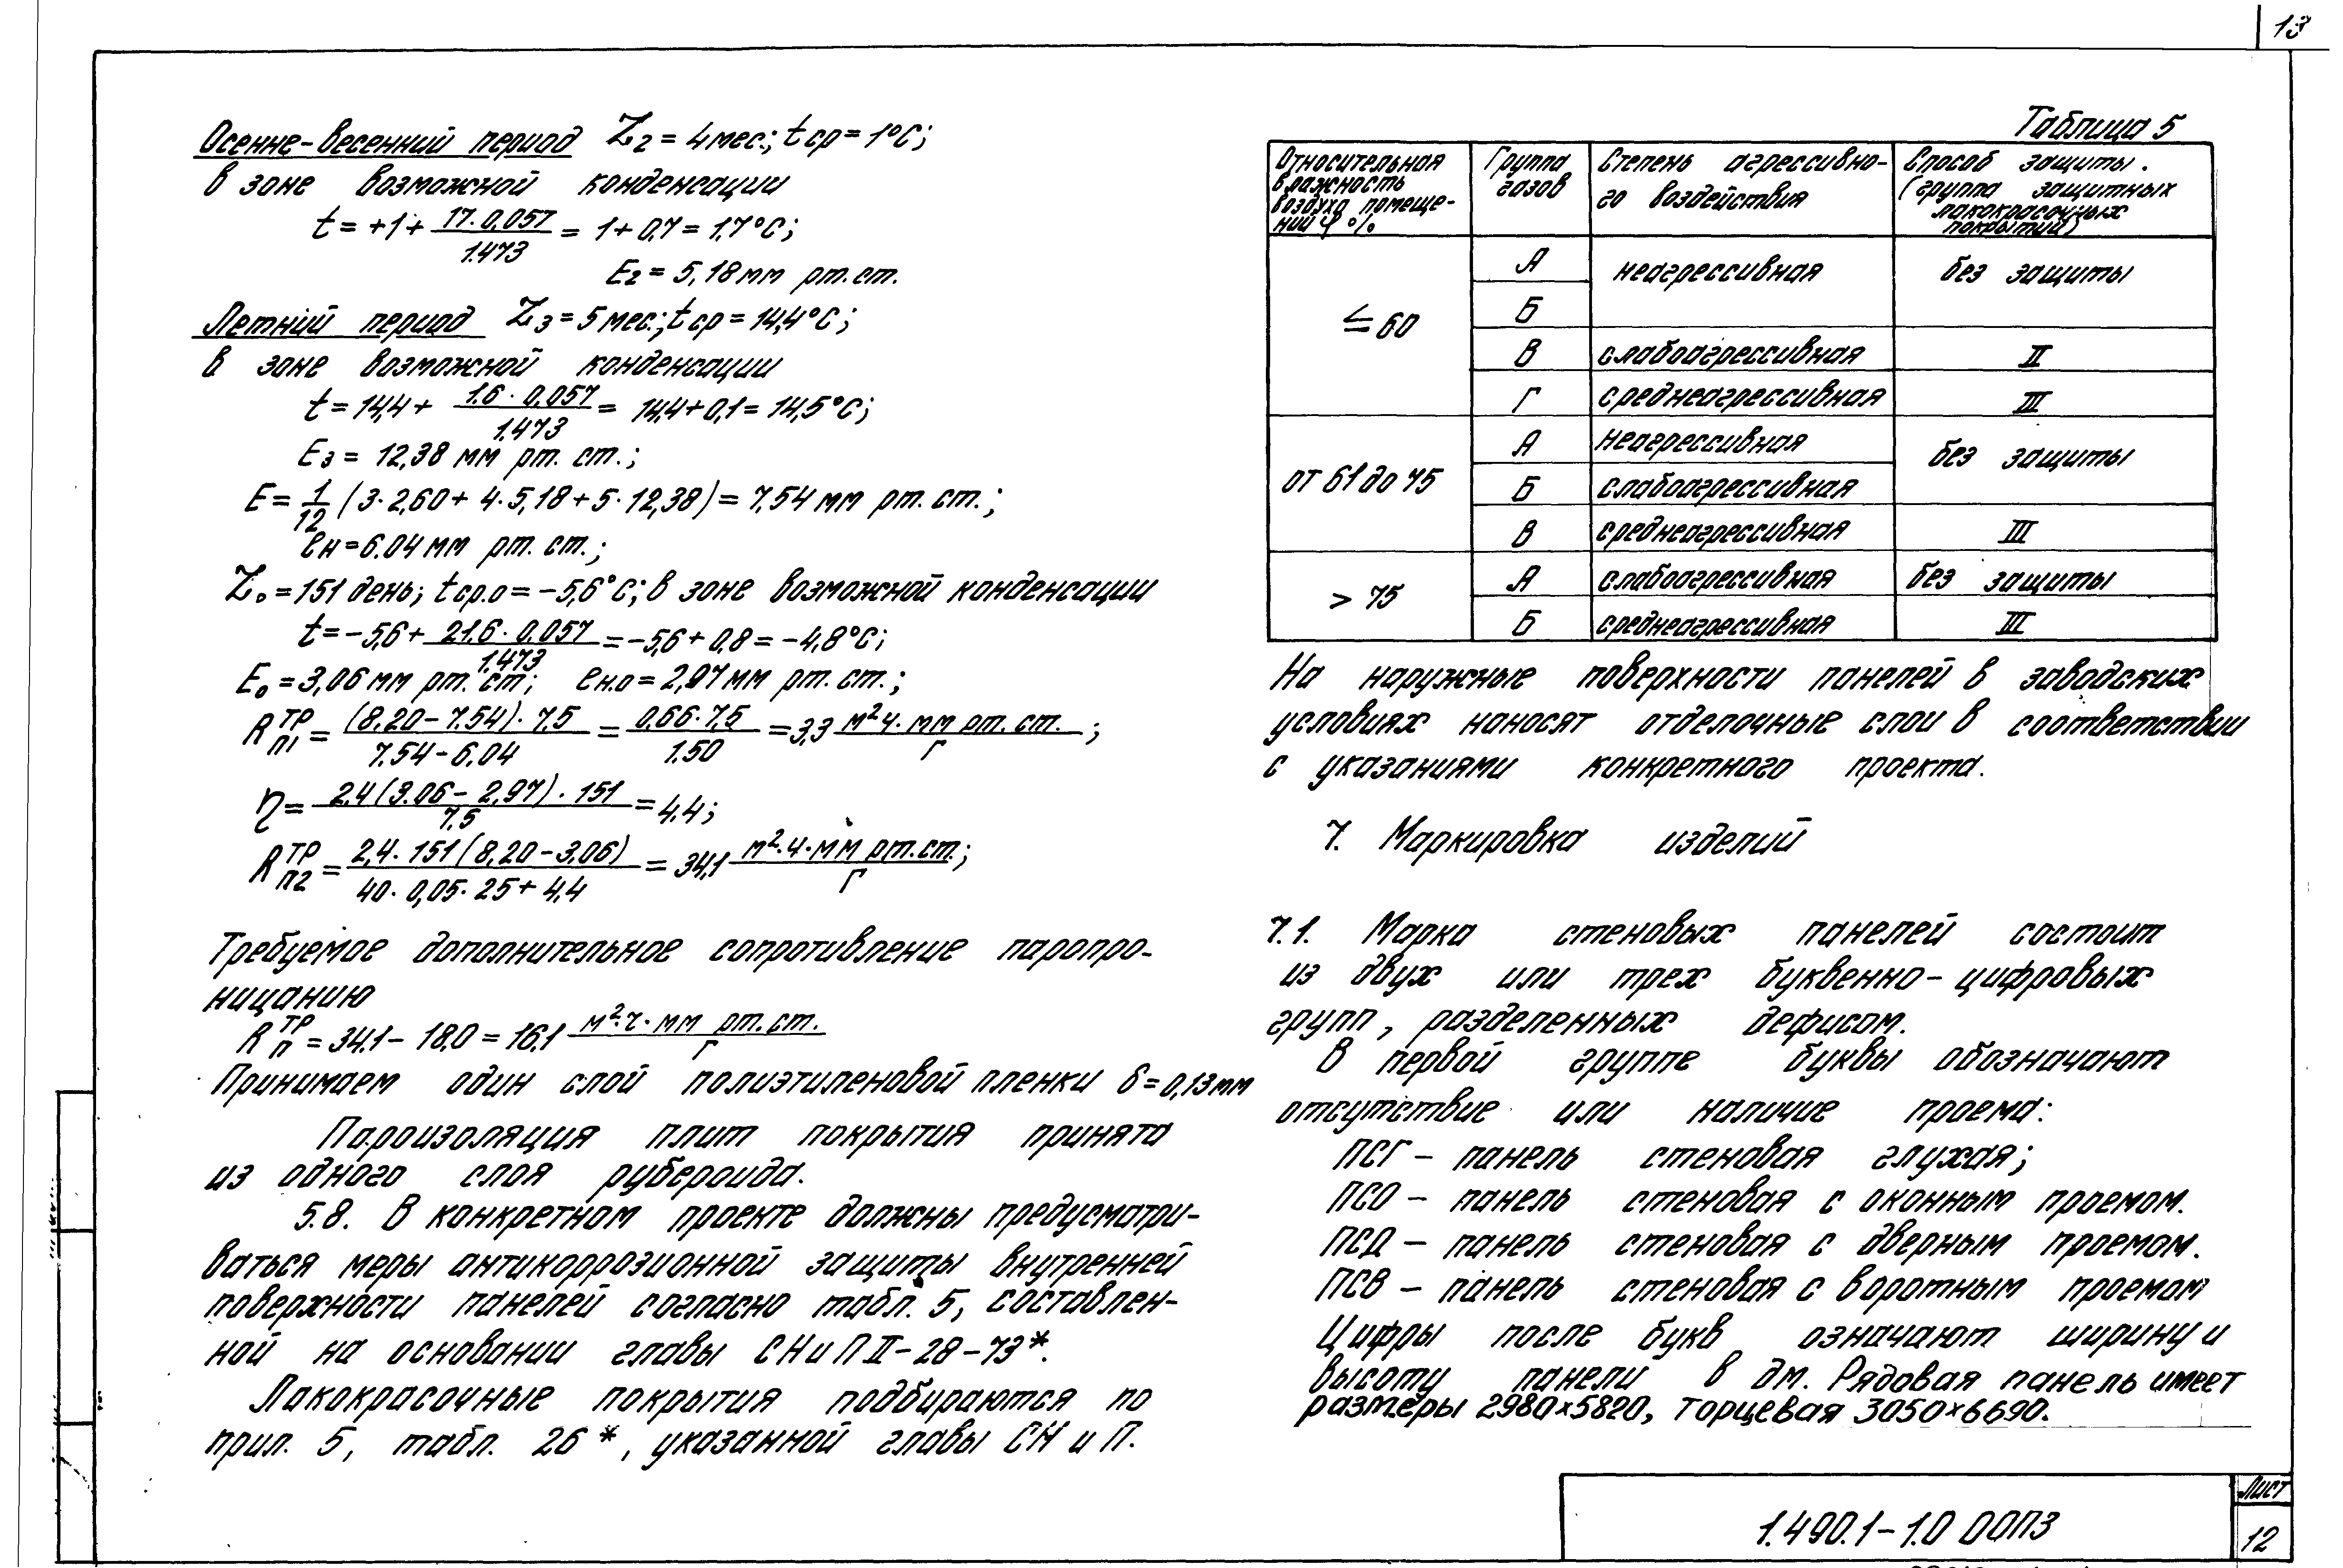 13
Осенне-весенний период Z₂ = 4 мес.; t ср = 1°С;
в зоне возможной конденсации
t = +1 + 17·0,057 / 1.473 = 1 + 0,7 = 1,7°С;
E₂ = 5,18 мм рт.ст.
Летний период Z₃ = 5 мес.; t ср = 14,4°С;
в зоне возможной конденсации
t = 14,4 + 1.6·0,057 / 1.473 = 14,4 + 0,1 = 14,5°С;
E₃ = 12,38 мм рт. ст.;
E = 1/12 (3·2,60 + 4·5,18 + 5·12,38) = 7,54 мм рт.ст.;
eн = 6.04 мм рт. ст.;
Z₀ = 151 день; t ср.о = -5,6°С; в зоне возможной конденсации
t = -5,6 + 21.6·0,057 / 1.473 = -5,6 + 0,8 = -4,8°С;
E₀ = 3,06 мм рт. ст; eн.о = 2,97 мм рт. ст.;
R ТР П1 = (8,20 - 7.54)·7,5 / 7.54 - 6.04 = 0,66·7,5 / 1.50 = 3,3 м²ч·мм рт. ст. / Г ;
η = 2,4(3.06 - 2,97)·151 / 7,5 = 4,4;
R ТР П2 = 2,4·151(8,20 - 3,06) / 40·0,05·25 + 4,4 = 34,1 м²·ч·мм рт.ст. / Г ;
Требуемое дополнительное сопротивление паропро-
ницанию
R ТР П = 34.1 - 18,0 = 16,1 м²·ч·мм рт.ст. / Г
Принимаем один слой полиэтиленовой пленки δ = 0,13 мм
Пароизоляция плит покрытия принята
из одного слоя рубероида.
5.8. В конкретном проекте должны предусматри-
ваться меры антикоррозионной защиты внутренней
поверхности панелей согласно табл. 5, составлен-
ной на основании главы СНиП II-28-73*.
Лакокрасочные покрытия подбираются по
прил. 5, табл. 26*, указанной главы СН и П.
Таблица 5
Относительная влажность воздуха помеще-ний φ % | Группа газов | Степень агрессивно-го воздействия | Способ защиты. (группа защитных лакокрасочных покрытий)
≤ 60 | А | неагрессивная | без защиты
Б
В | слабоагрессивная | II
Г | среднеагрессивная | III
от 61 до 75 | А | неагрессивная | без защиты
Б | слабоагрессивная
В | среднеагрессивная | III
> 75 | А | слабоагрессивная | без защиты
Б | среднеагрессивная | III
На наружные поверхности панелей в заводских
условиях наносят отделочные слои в соответствии
с указаниями конкретного проекта.
7. Маркировка изделий
7.1. Марка стеновых панелей состоит
из двух или трех буквенно-цифровых
групп, разделенных дефисом.
В первой группе буквы обозначают
отсутствие или наличие проема:
ПСГ – панель стеновая глухая;
ПСО – панель стеновая с оконным проемом.
ПСД – панель стеновая с дверным проемом.
ПСВ – панель стеновая с воротным проемом
Цифры после букв означают ширину и
высоту панели в дм. Рядовая панель имеет
размеры 2980×5820, торцевая 3050×6690.
1.490.1-1.0 00ПЗ
Лист
12